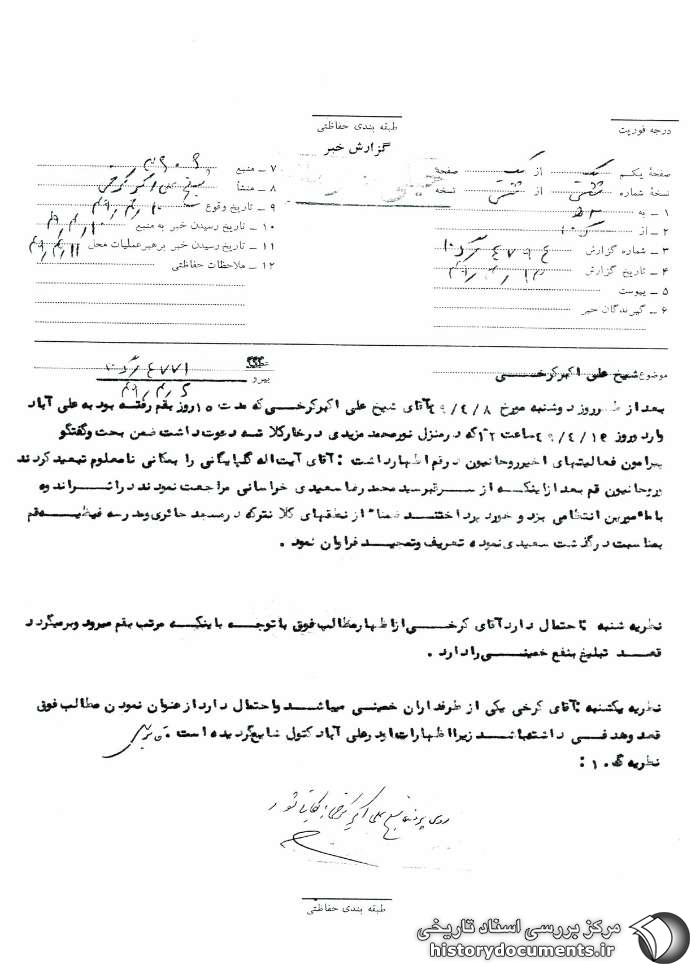 درجه فوریت
طبقه بندی حفاظتی
گزارش خبر
صفحهٔ یکم یک از یک صفحهٔ
نسخهٔ شماره از نسخهٔ
۱ ـ به
۲ ـ از
۳ ـ شماره گزارش
۴ ـ تاریخ گزارش
۵ ـ پیوست
۶ ـ گیرندگان خبر
۷ ـ منبع
۸ ـ منشأ شیخ علی اکبر کرخی
۹ ـ تاریخ وقوع
۱۰ ـ تاریخ رسیدن خبر به منبع
۱۱ ـ تاریخ رسیدن خبر برهبر عملیات محل
۱۲ ـ ملاحظات حفاظتی
موضوع شیخ علی اکبر کرخی
پیرو
بعد از ظهر روز دوشنبه مورخ ۴۹/۴/۸ آقای شیخ علی اکبر کرخی که مدت ۱۵ روز بقم رفته بود به علی آباد
وارد و روز ساعت ۱۲ که در منزل نور محمد مزیدی در خارکلا ته دعوت داشت ضمن بحث و گفتگو
پیرامون فعالیتهای اخیر روحانیون در قم اظهار داشت : آقای آیت اله گلپایگانی را بمکانی نامعلوم تبعید کردند
و روحانیون قم بعد از اینکه از سر قبر سید محمد رضا سعیدی خراسانی مراجعت نمودند در اثر
با مامورین انتظامی بزد و خورد پرداختند ضمنا" از نطقهای کلانتر که در مسجد حائری و مدرسه فیضیه قم
بمناسبت درگذشت سعیدی نموده تعریف و تمجید فراوان نمود .
نظریه شنبه : احتمال دارد آقای کرخی از اظهار مطالب فوق با توجه باینکه مرتب بقم میرود و برمیگردد
قصد تبلیغ بنفع خمینی را دارد .
نظریه یکشنبه : آقای کرخی یکی از طرفداران خمینی میباشد و احتمال دارد از عنوان نمودن مطالب فوق
قصد و هدفی داشته باشد زیرا اظهارات او در علی آباد کتول شایع گردیده است .
نظریه گ . ۱ :
روی پرونده شیخ علی اکبر کرخی بایگانی شود
طبقه بندی حفاظتی
مرکز بررسی اسناد تاریخی
historydocuments.ir